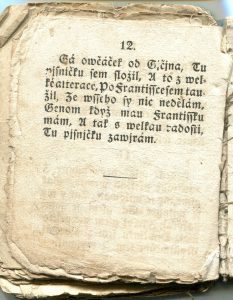 12.
Gá owčáček od Gičjna, Tu
pjsničku sem složil, A to z wel-
kéatterace, Po Frantisscesem tau-
žil, Že wsseho sy nic nedělám,
Genom když mau Frantissku
mám, A tak s welkau radosti,
Tu pjsnjčku zawjrám.